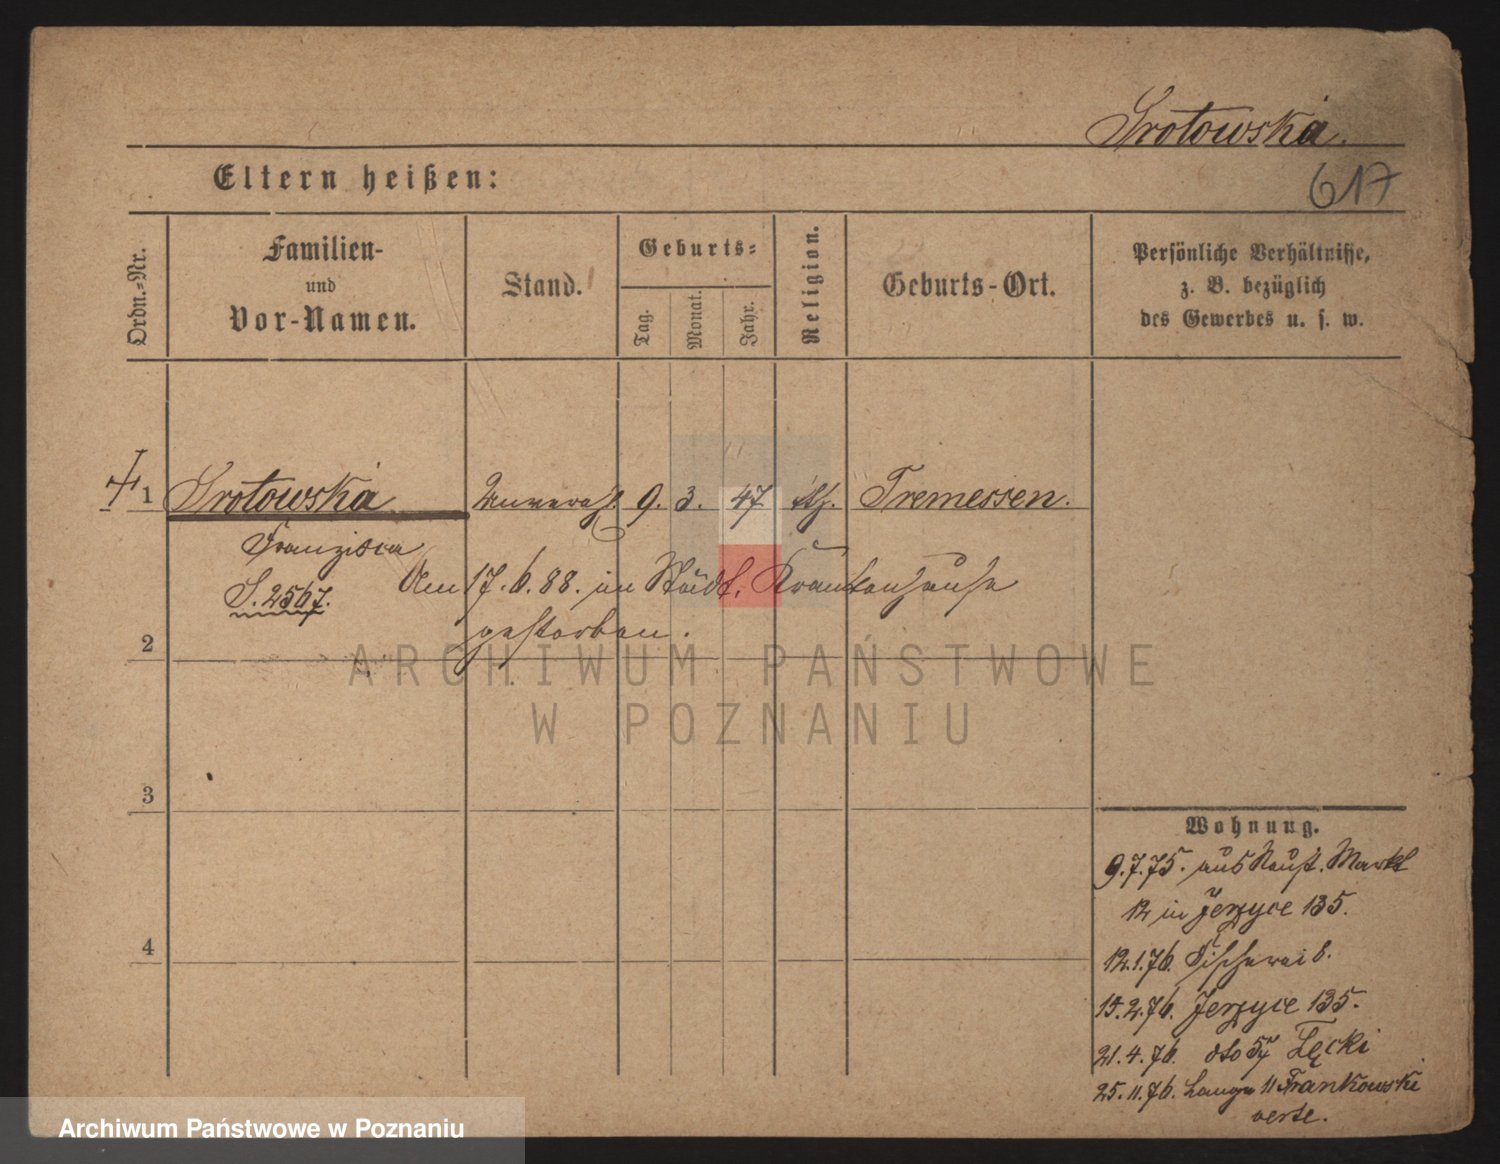 Srotowska.
617
Eltern heißen:
Ordn.=Nr.
Familien-
und
Vor-Namen.
Stand.
Geburts=
Tag.
Monat.
Jahr.
Religion.
Geburts-Ort.
Persönliche Verhältnisse,
z. B. bezüglich
des Gewerbes u. s. w.
1 Srotowska Unvereh. 9. 3. 47 kth. Tremessen.
Franziska
S. 2567. Am 17.6.88. im Städt. Krankenhause
gestorben.
2
ARCHIWUM PAŃSTWOWE
W POZNANIU
3
Wohnung.
9.7.75. aus Neust. Markt
12 in Jerzyce 135.
4
12.1.76. Fischerei 8.
15.2.76. Jerzyce 135.
21.4.76. dto 57 Łęcki
25.11.76. Lange 11 Frankowski
verte.
Archiwum Państwowe w Poznaniu